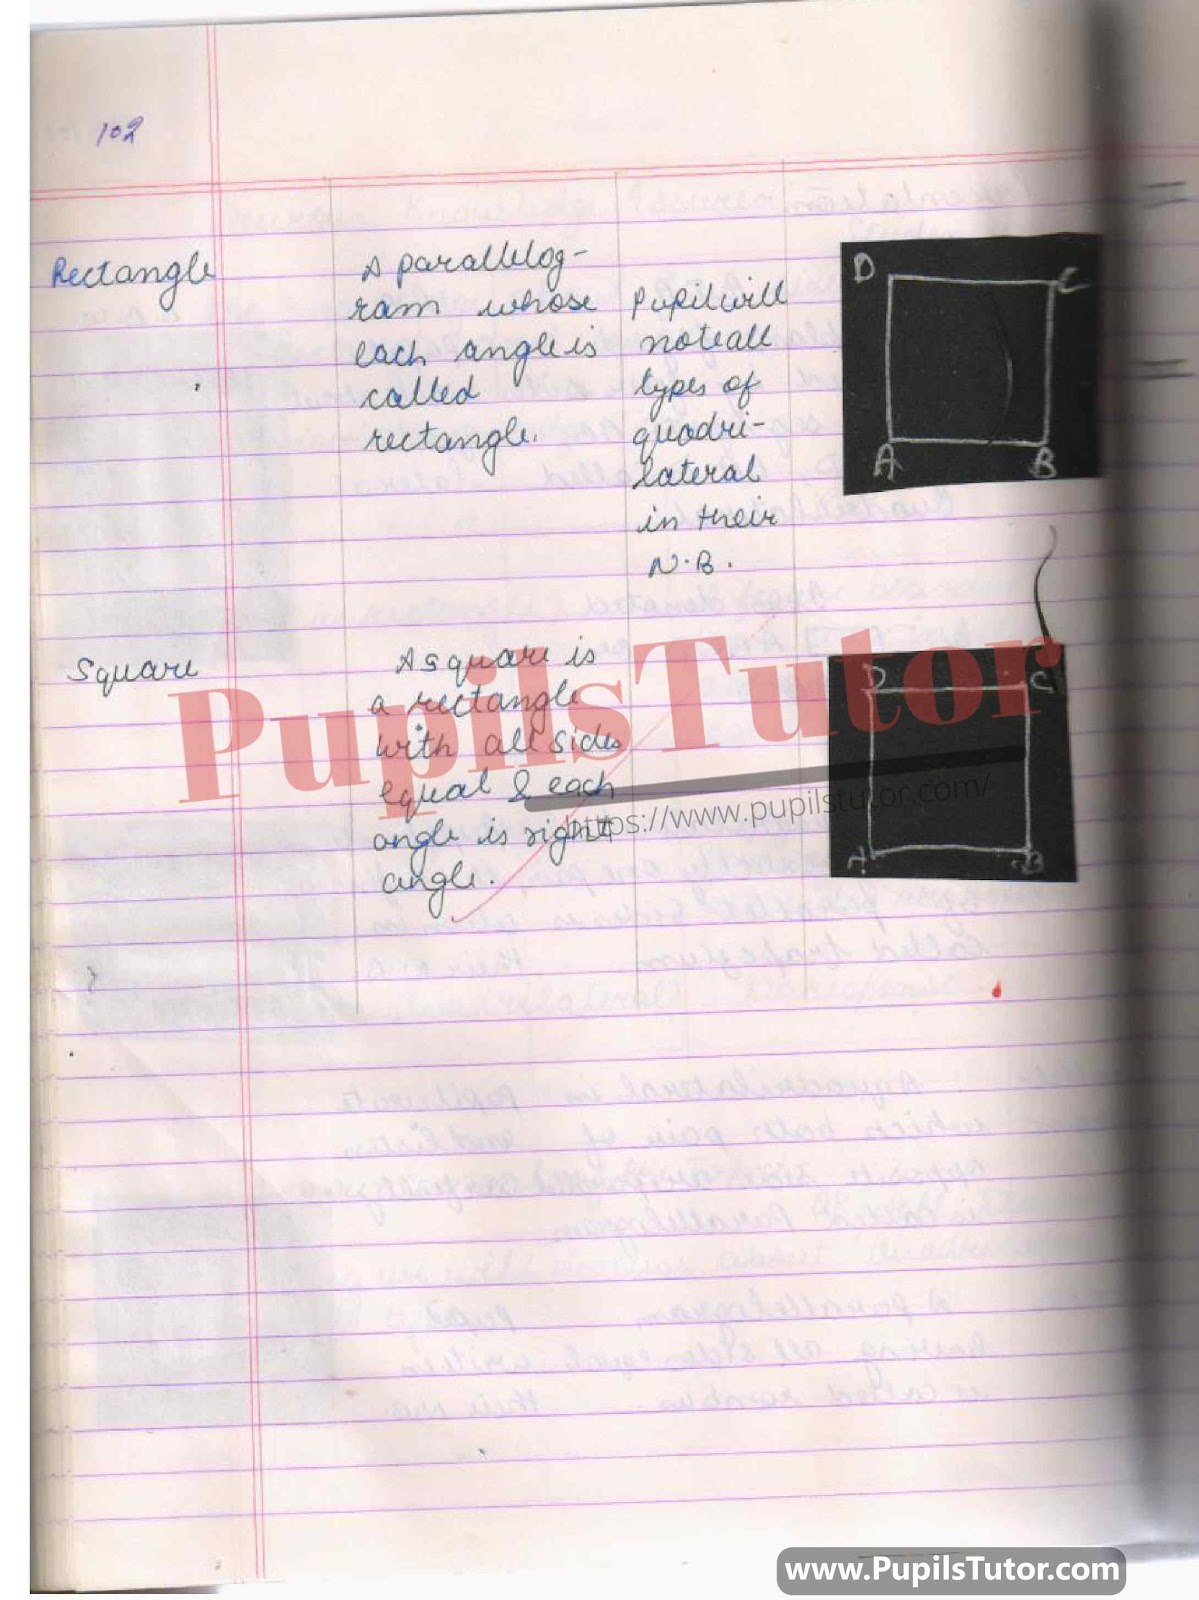 102
Rectangle
A parallelog-
ram whose
each angle is
called
rectangle.
Pupil will
note all
types of
quadri-
lateral
in their
N.B.
D C
A B
Square
A square is
a rectangle
with all sides
equal & each
angle is right
angle.
D C
A B
PupilsTutor
https://www.pupilstutor.com/
www.PupilsTutor.com